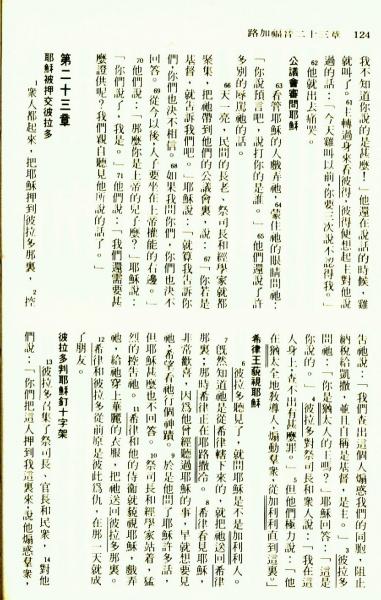 路加福音二十三章 124
我不知道你說的是甚麼！」他還在說話的時候，雞
就叫了。61主轉過身來看彼得，彼得便想起主對他說
過的話：「今天雞叫以前，你要三次說不認得我。」
62他就出去痛哭。
公議會審問耶穌
63看答耶穌的人戲弄祂，64蒙住祂的眼睛問祂：
「你說預言吧，說打你的是誰。」65他們還說了許
多別的辱罵祂的話。
66天一亮，民間的長老、祭司長和經學家就都
聚集，把祂帶到他們的公議會裏，說：67「你若是
基督，就告訴我們吧。」耶穌說：「就算我告訴你
們，你們也決不相信。68如果我問你們，你們也決不
回答。69從今以後，人子要坐在上帝權能的右邊。」
70他們說：「那麼你是上帝的兒子麼？」耶穌說：
「你們說了，我是。」71他們說：「我們還需要甚
麼證供呢？我們親自聽見他所說的話了。」
第二十三章
耶穌被押交彼拉多
1衆人都起來，把耶穌押到彼拉多那裏，2控
告祂說：「我們查出這個人煽惑我們的同胞，阻止
納稅給凱撒，並且自稱是基督，是王。」3彼拉多
問祂：「你是猶太人的王嗎？」耶穌回答：「這是
你說的。」4彼拉多對祭司長和衆人說：「我在這
人身上查不出有甚麼罪。」5但他們極力說：「他
在猶太全地教導人，煽動羣衆，從加利利直到這裏。」
希律王藐視耶穌
6彼拉多聽見了，就問耶穌是不是加利利人。
7旣然知道祂是從希律轄下來的，就把祂送回希律
那裏；那時希律正在耶路撒冷。8希律看見耶穌，
非常歡喜，因爲他曾經聽過耶穌的事，早就想要見
祂，希望看祂行個神蹟。9於是他問了耶穌許多話，
但耶穌甚麼也不回答。10祭司長和經學家站着，猛
烈的控告祂。11希律和他的侍衞就藐視耶穌，戲弄
祂，給祂穿上華麗的衣服，把祂送回彼拉多那裏。
12希律和彼拉多從前原是彼此爲仇，在那一天就成
了朋友。
彼拉多判耶穌釘十字架
13彼拉多召集了祭司長、官長和民衆，14對他
們說：「你們把這人押到我這裏來，說他煽惑羣衆，